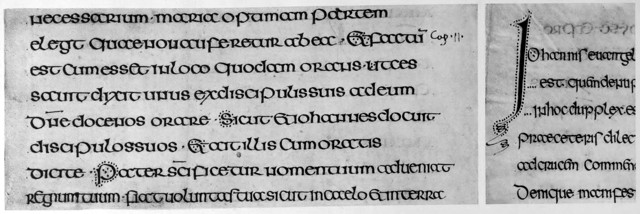 necessarium · maria optimam partem
elegit quae non auferetur ab ea · Et factū Cap. 11.
est cum esset in loco quodam orans · ut ces
sauit dixit unus ex discipulis suis ad eum
dn̄e doce nos orare · Sicut et iohannes docuit
discipulos suos · Et ait illis cum oratis
dicite · Pater sc̄ificetur nomen tuum adueniat
regnum tuum · fiat uoluntas tua sicut in caelo et in terra
Iohannis euangel
est · quānderup
In hoc duplex es
praeceteris dilec
Demque manifes